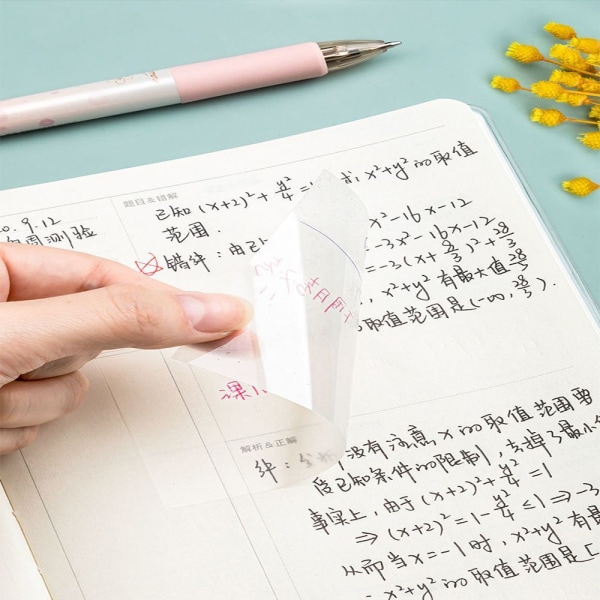 题目&错解
0.9.12
周测验
已知(x+2)²+y²/4=1
求x²+y²的取值
范围.
错解:由已
x²-16x-12
=-3x²-16x-12
=-3(x+8/3)²+28/3
,x²+y²有最大值28/3
取值范围是(-∞,28/3).
课
解析&正解
解:分析
没有注意x的取值范围要
受已知条件的限制,丢掉了最小
事实上,由于(x+2)²+y²/4=1
⇒(x+2)²=1-y²/4≤1⇒-3
从而当x=-1时,x²+y²有最
x²+y²的取值范围是[